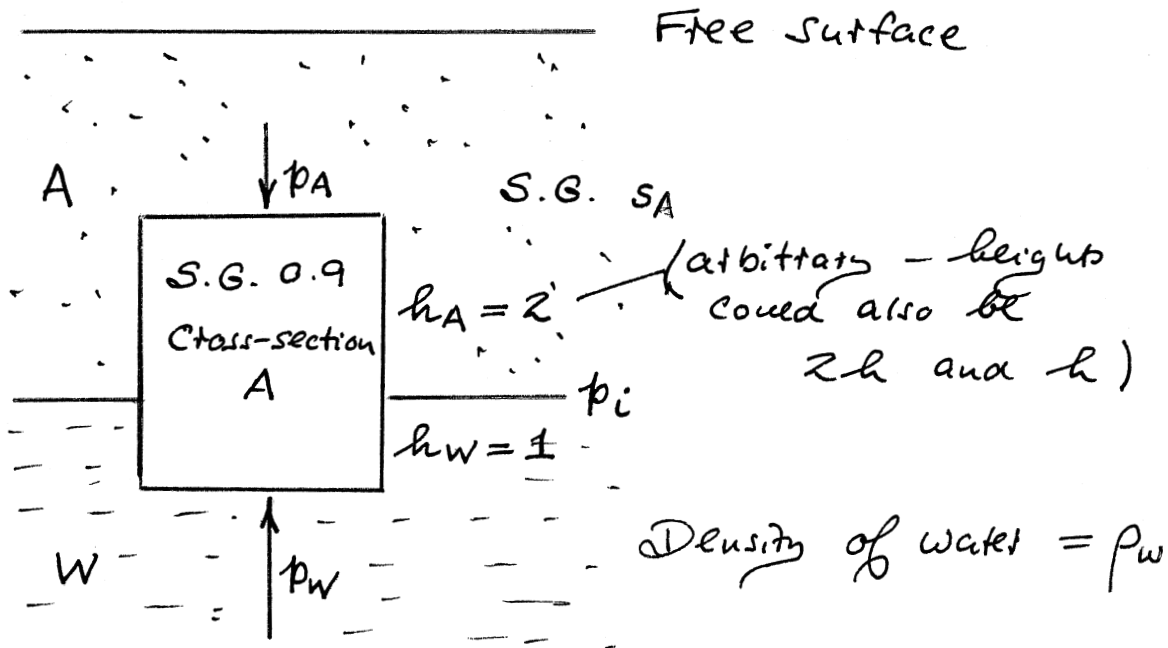 Free surface
A
p_A
S.G. s_A
S.G. 0.9
Cross-section
A
h_A = 2
(arbitrary – heights
could also be
2h and h)
p_i
h_W = 1
Density of water = ρ_w
W
p_W